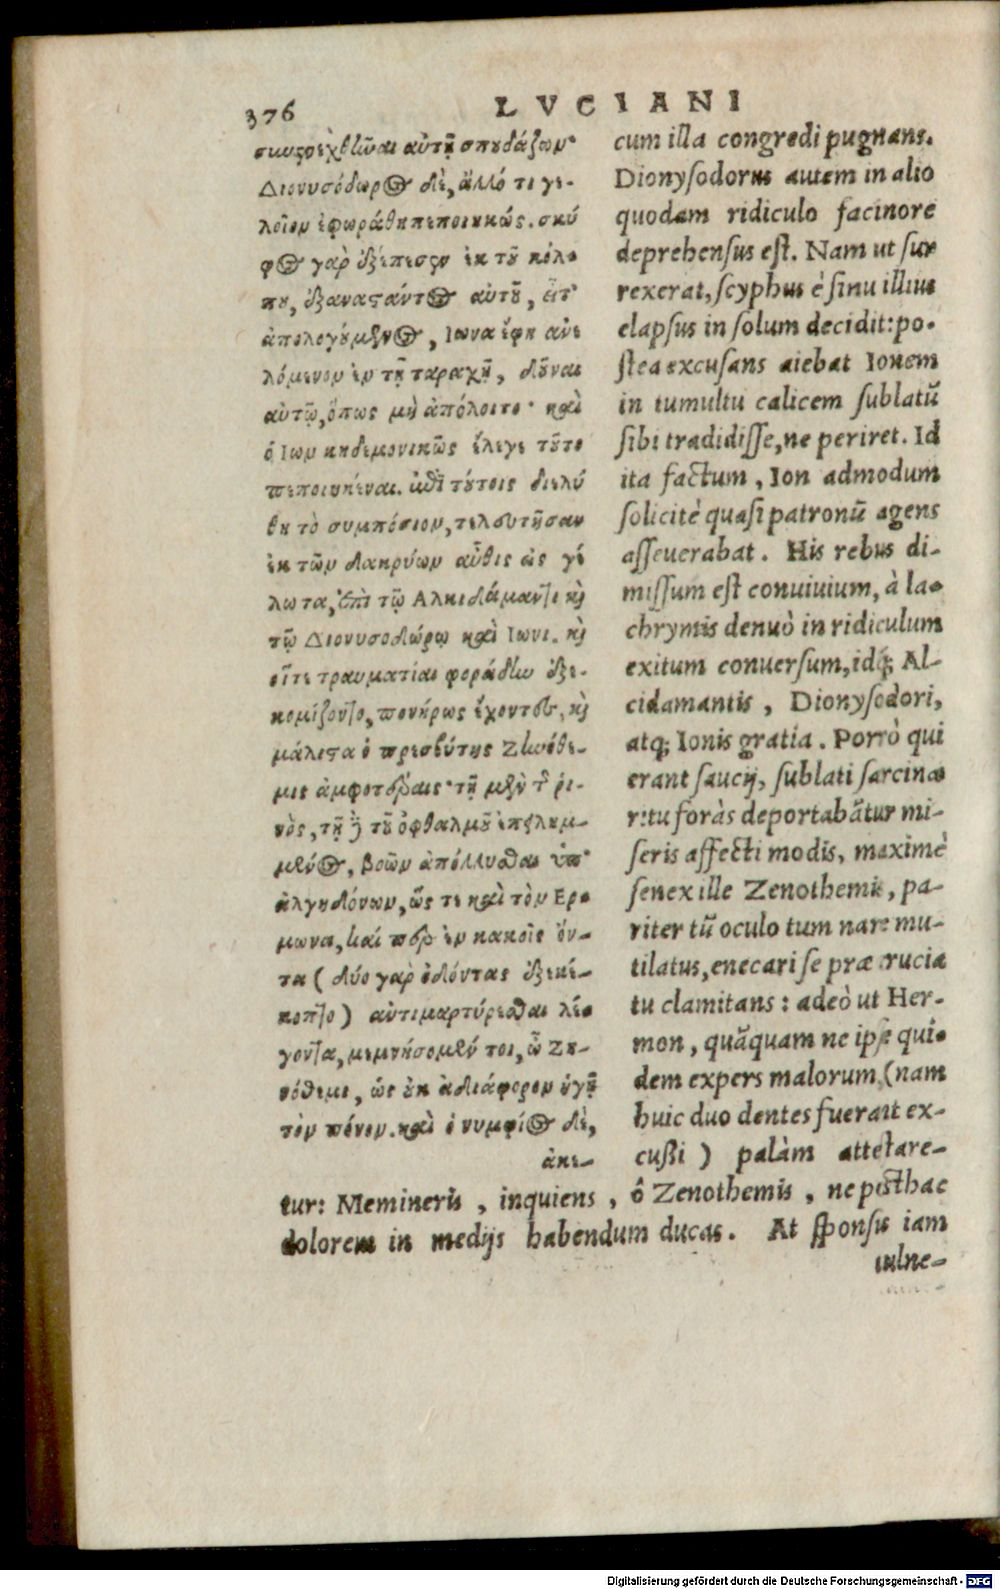 376
LVCIANI
συνενεχθῆναι αὐτῇ σπουδάζων·
Διονυσόδωρος δὲ, ἄλλό τι γε-
λοῖον ἐφωράθη πεποιηκώς. σκύ
φος γὰρ ἐξέπεσεν ἐκ τοῦ κόλπου
που, ἐξαναστάντος αὐτοῦ, εἶτ'
ἀπολογούμενος, Ιωνα ἔφη ἀνε
λόμενον ἐν τῇ ταραχῇ, δοῦναι
αὐτῷ, ὅπως μὴ ἀπόλοιτο· καὶ
ὁ Ιων κηδεμονικῶς ἔλεγε τοῦτο
πεποιηκέναι. ἐπὶ τούτοις διελύ
θη τὸ συμπόσιον, τελευτῆσαν
ἐκ τῶν δακρύων αὖθις ὡς γέ
λωτα, ἐπὶ τῷ Αλκιδάμαντι καὶ
τῷ Διονυσοδώρῳ καὶ Ιωνι. καὶ
οἵτε τραυματίαι φοράδην ἐξε-
κομίζοντο, πονήρως ἔχοντες, καὶ
μάλιστα ὁ πρεσβύτης Ζηνόθε-
μις ἀμφοτέραις· τῇ μὲν τῆς ῥι-
νὸς, τῇ δὲ τοῦ ὀφθαλμοῦ ἐπειλημ-
μένος, βοῶν ἀπόλλυσθαι ὑπ'
ἀλγηδόνων, ὥς τε καὶ τὸν Ερ
μωνα, καί περ ἐν κακοῖς ὄν-
τα (δύο γὰρ ὀδόντας ἐξεκέ-
κοπτο) ἀντιμαρτύρεσθαι λέ
γοντα, μεμνήσομέν τοι, ὦ Ζη-
νόθεμι, ὡς οὐκ ἀδιάφορον ἡγῇ
τὸν πόνον. καὶ ὁ νυμφίος δὲ,
ἀκε-
cum illa congredi pugnans.
Dionysodorus autem in alio
quodam ridiculo facinore
deprehensus est. Nam ut sur
rexerat, scyphus è sinu illius
elapsus in solum decidit: po-
stea excusans aiebat Ionem
in tumultu calicem sublatũ
sibi tradidisse, ne periret. Id
ita factum, Ion admodum
solicitè quasi patronũ agens
asseuerabat. His rebus di-
missum est conuiuium, à la-
chrymis denuò in ridiculum
exitum conuersum, idq; Al-
cidamantis, Dionysodori,
atq; Ionis gratia. Porrò qui
erant saucij, sublati sarcinæ
ritu foràs deportabãtur mi-
seris affecti modis, maximè
senex ille Zenothemis, pa-
riter tũ oculo tum nare mu-
tilatus, enecari se præ crucia
tu clamitans: adeò ut Her-
mon, quãquam ne ipse qui-
dem expers malorum (nam
huic duo dentes fuerant ex-
cußi) palàm attestare-
tur: Memineris, inquiens, ô Zenothemis, ne posthac
dolorem in medijs habendum ducas. At sponsus iam
uulne-
Digitalisierung gefördert durch die Deutsche Forschungsgemeinschaft - DFG